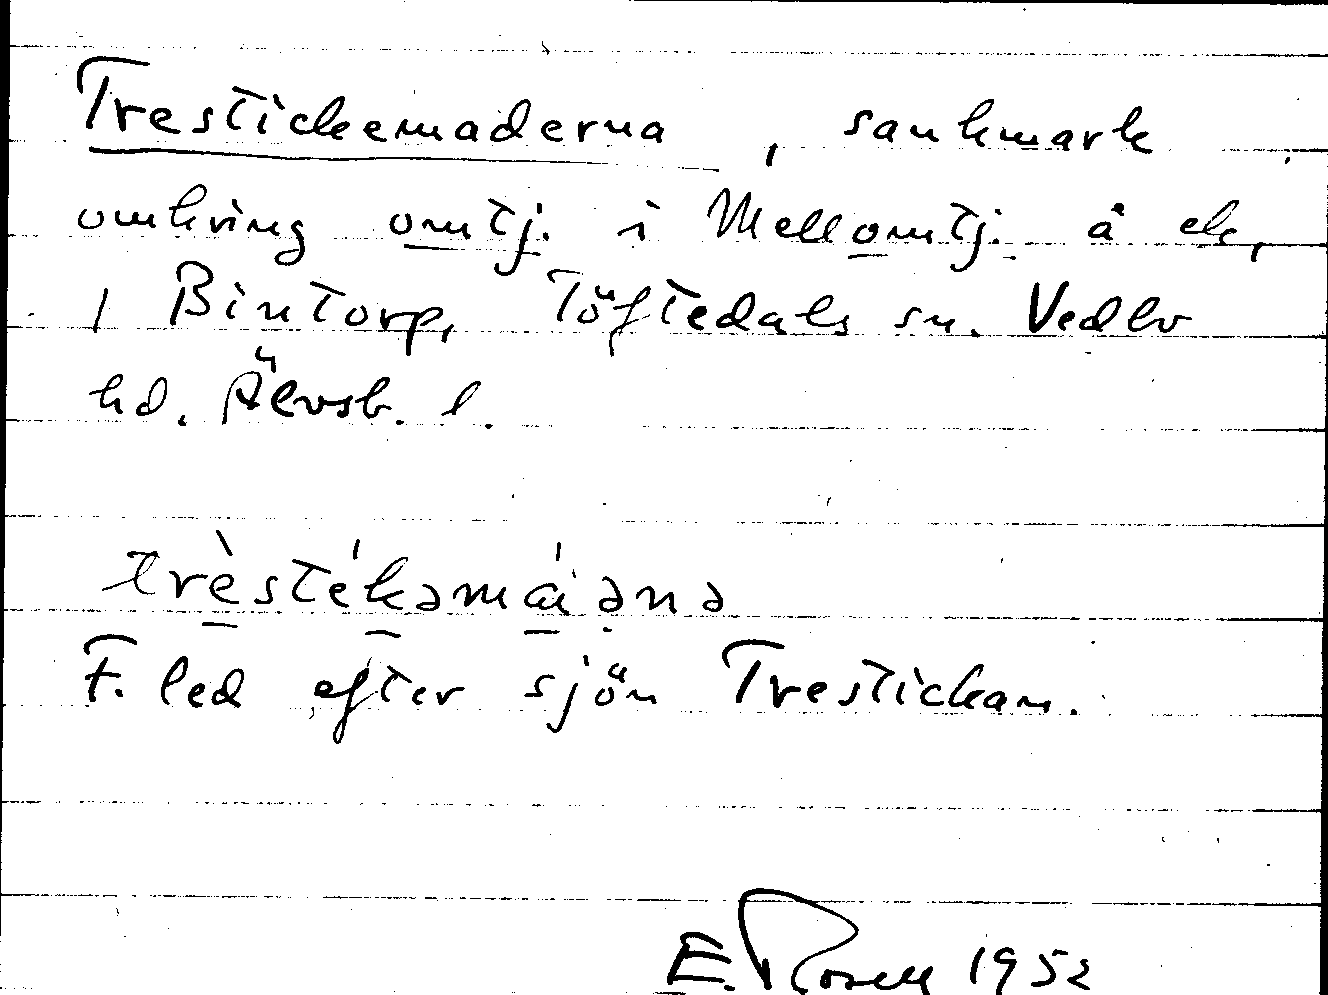 Trestickemaderna, sankmark
omkring omtj. i Mellomtj. å ek,
i Bintorp, Töftedals sn. Vedbo
hd. Älvsb. l.
trèstékəmáiənə
F. led efter sjön Trestickan.
E. Rosell 1952